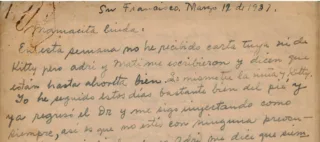 San Francisco, Marzo 12 de 1931.
Mamacita linda:
En esta semana no he recibido carta tuya ni de
Kitty pero Adri y Mati me escribieron y dicen que
estan hasta ahorita bien. de mamacita la niña y Kitty.
Yo he seguido estos días bastante bien del pie y
ya regresó el Dr y me sigo inyectando como
siempre, así es que no estés con ninguna
me dice que